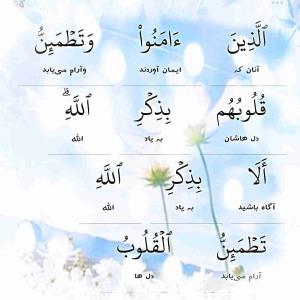 ٱلَّذِينَ ءَامَنُوا۟ وَتَطۡمَئِنُّ
آنان که ایمان آوردند وآرام می‌یابد
قُلُوبُهُم بِذِكۡرِ ٱللَّهِۗ
دل هاشان به یاد الله
أَلَا بِذِكۡرِ ٱللَّهِ
آگاه باشید به یاد الله
تَطۡمَئِنُّ ٱلۡقُلُوبُ
آرام می‌یابد دل ها